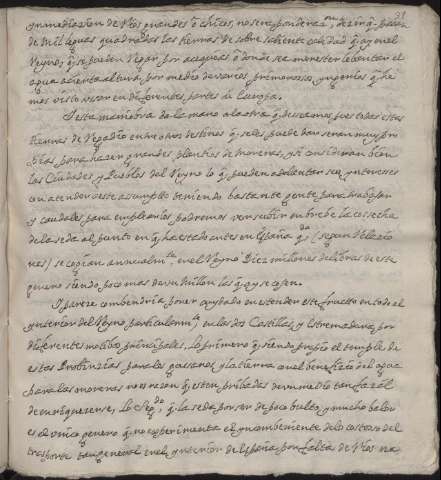 inmediazion de Rios grandes ò chicos, no será ponderaz.on dezir q.e passa
de Mil leguas quadradas las tierras de sobresaliente calidad q.e ay en el
Reyno, q.e se pueden Regar por azequias ò donde sea menester lebantar el
agua à zierta altura, por medio de varios primorosos ingenios q.e he
mos visto usar en diferentes partes de Europa.
Y esta maniobra da la mano a la otra q.e deseamos, pues todas estas
tierras de Regadio entre otros destinos q.e se les puede dar seran muy pro
pias para hazer grandes plantios de moreras, y si consideran bien
las Ciudades y Pueblos del Reyno lo q.e pueden adelantar sus yntereses
con atender a este asumpto teniendo bastante gente para trabajar
y caudales para emplearlos podremos ver subir en brebe la cosecha
de la seda al punto en q.e ha estado antes en España q.do (segun Relazio
nes) se cogian annualm.te en el Reyno Diez millones de libras de este
genero siendo poco mas de un Millon las q.e oy se cojen.
Y pareze combendria poner cuydado en estender este fructo en todo el
ynterior del Reyno particularm.te en las dos Castillas, y Estremadura por
diferentes motibos prinzipales, lo primero q.e siendo propio el temple de
estas Probinzias para los gusanos, y la tierra con el benefizio del agua
para las moreras no es razon q.e esten pribadas de un medio tan fazil
de enriquezerse, lo Seg.do q.e la seda por ser de poco bulto, y mucho balor
es el unico genero q.e no experimenta el yncombeniente de lo costoso del
trasporte tan general en el ynterior de España por falta de Rios na